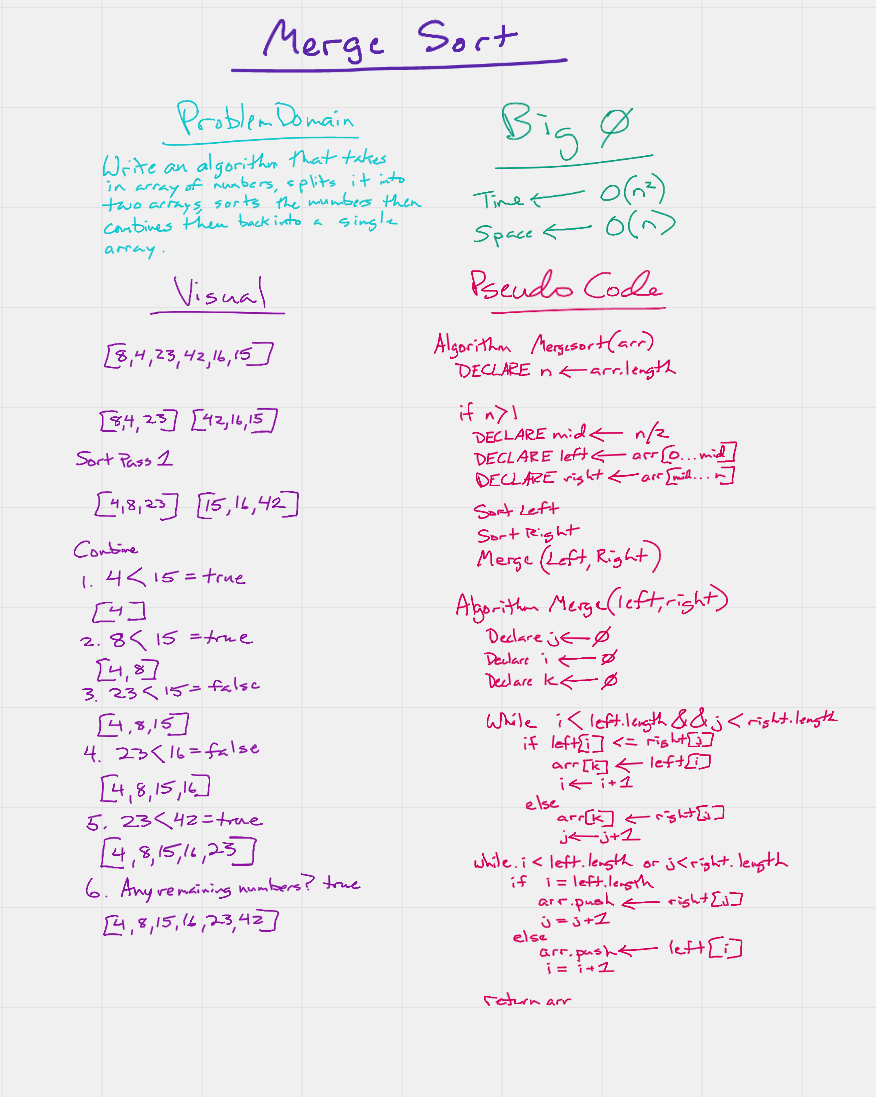 Merge Sort
Problem Domain
Write an algorithm that takes
in array of numbers, splits it into
two arrays, sorts the numbers then
combines then back into a single
array.
Big Ø
Time ← O(n²)
Space ← O(n)
Visual
[8,4,23,42,16,15]
[8,4,23] [42,16,15]
Sort Pass 1
[4,8,23] [15,16,42]
Combine
1. 4 < 15 = true
[4]
2. 8 < 15 = true
[4,8]
3. 23 < 15 = false
[4,8,15]
4. 23 < 16 = false
[4,8,15,16]
5. 23 < 42 = true
[4,8,15,16,23]
6. Any remaining numbers? true
[4,8,15,16,23,42]
Pseudo Code
Algorithm Mergesort(arr)
DECLARE n ← arr.length
if n>1
DECLARE mid ← n/2
DECLARE left ← arr[0...mid]
DECLARE right ← arr[mid...n]
Sort Left
Sort Right
Merge (Left, Right)
Algorithm Merge(left,right)
Declare j ← Ø
Declare i ← Ø
Declare k ← Ø
While i < left.length && j < right.length
if left[i] <= right[j]
arr[k] ← left[i]
i ← i+1
else
arr[k] ← right[j]
j ← j+1
while.i < left.length or j<right.length
if i = left.length
arr.push ← right[j]
j = j+1
else
arr.push ← left[i]
i = i+1
return arr